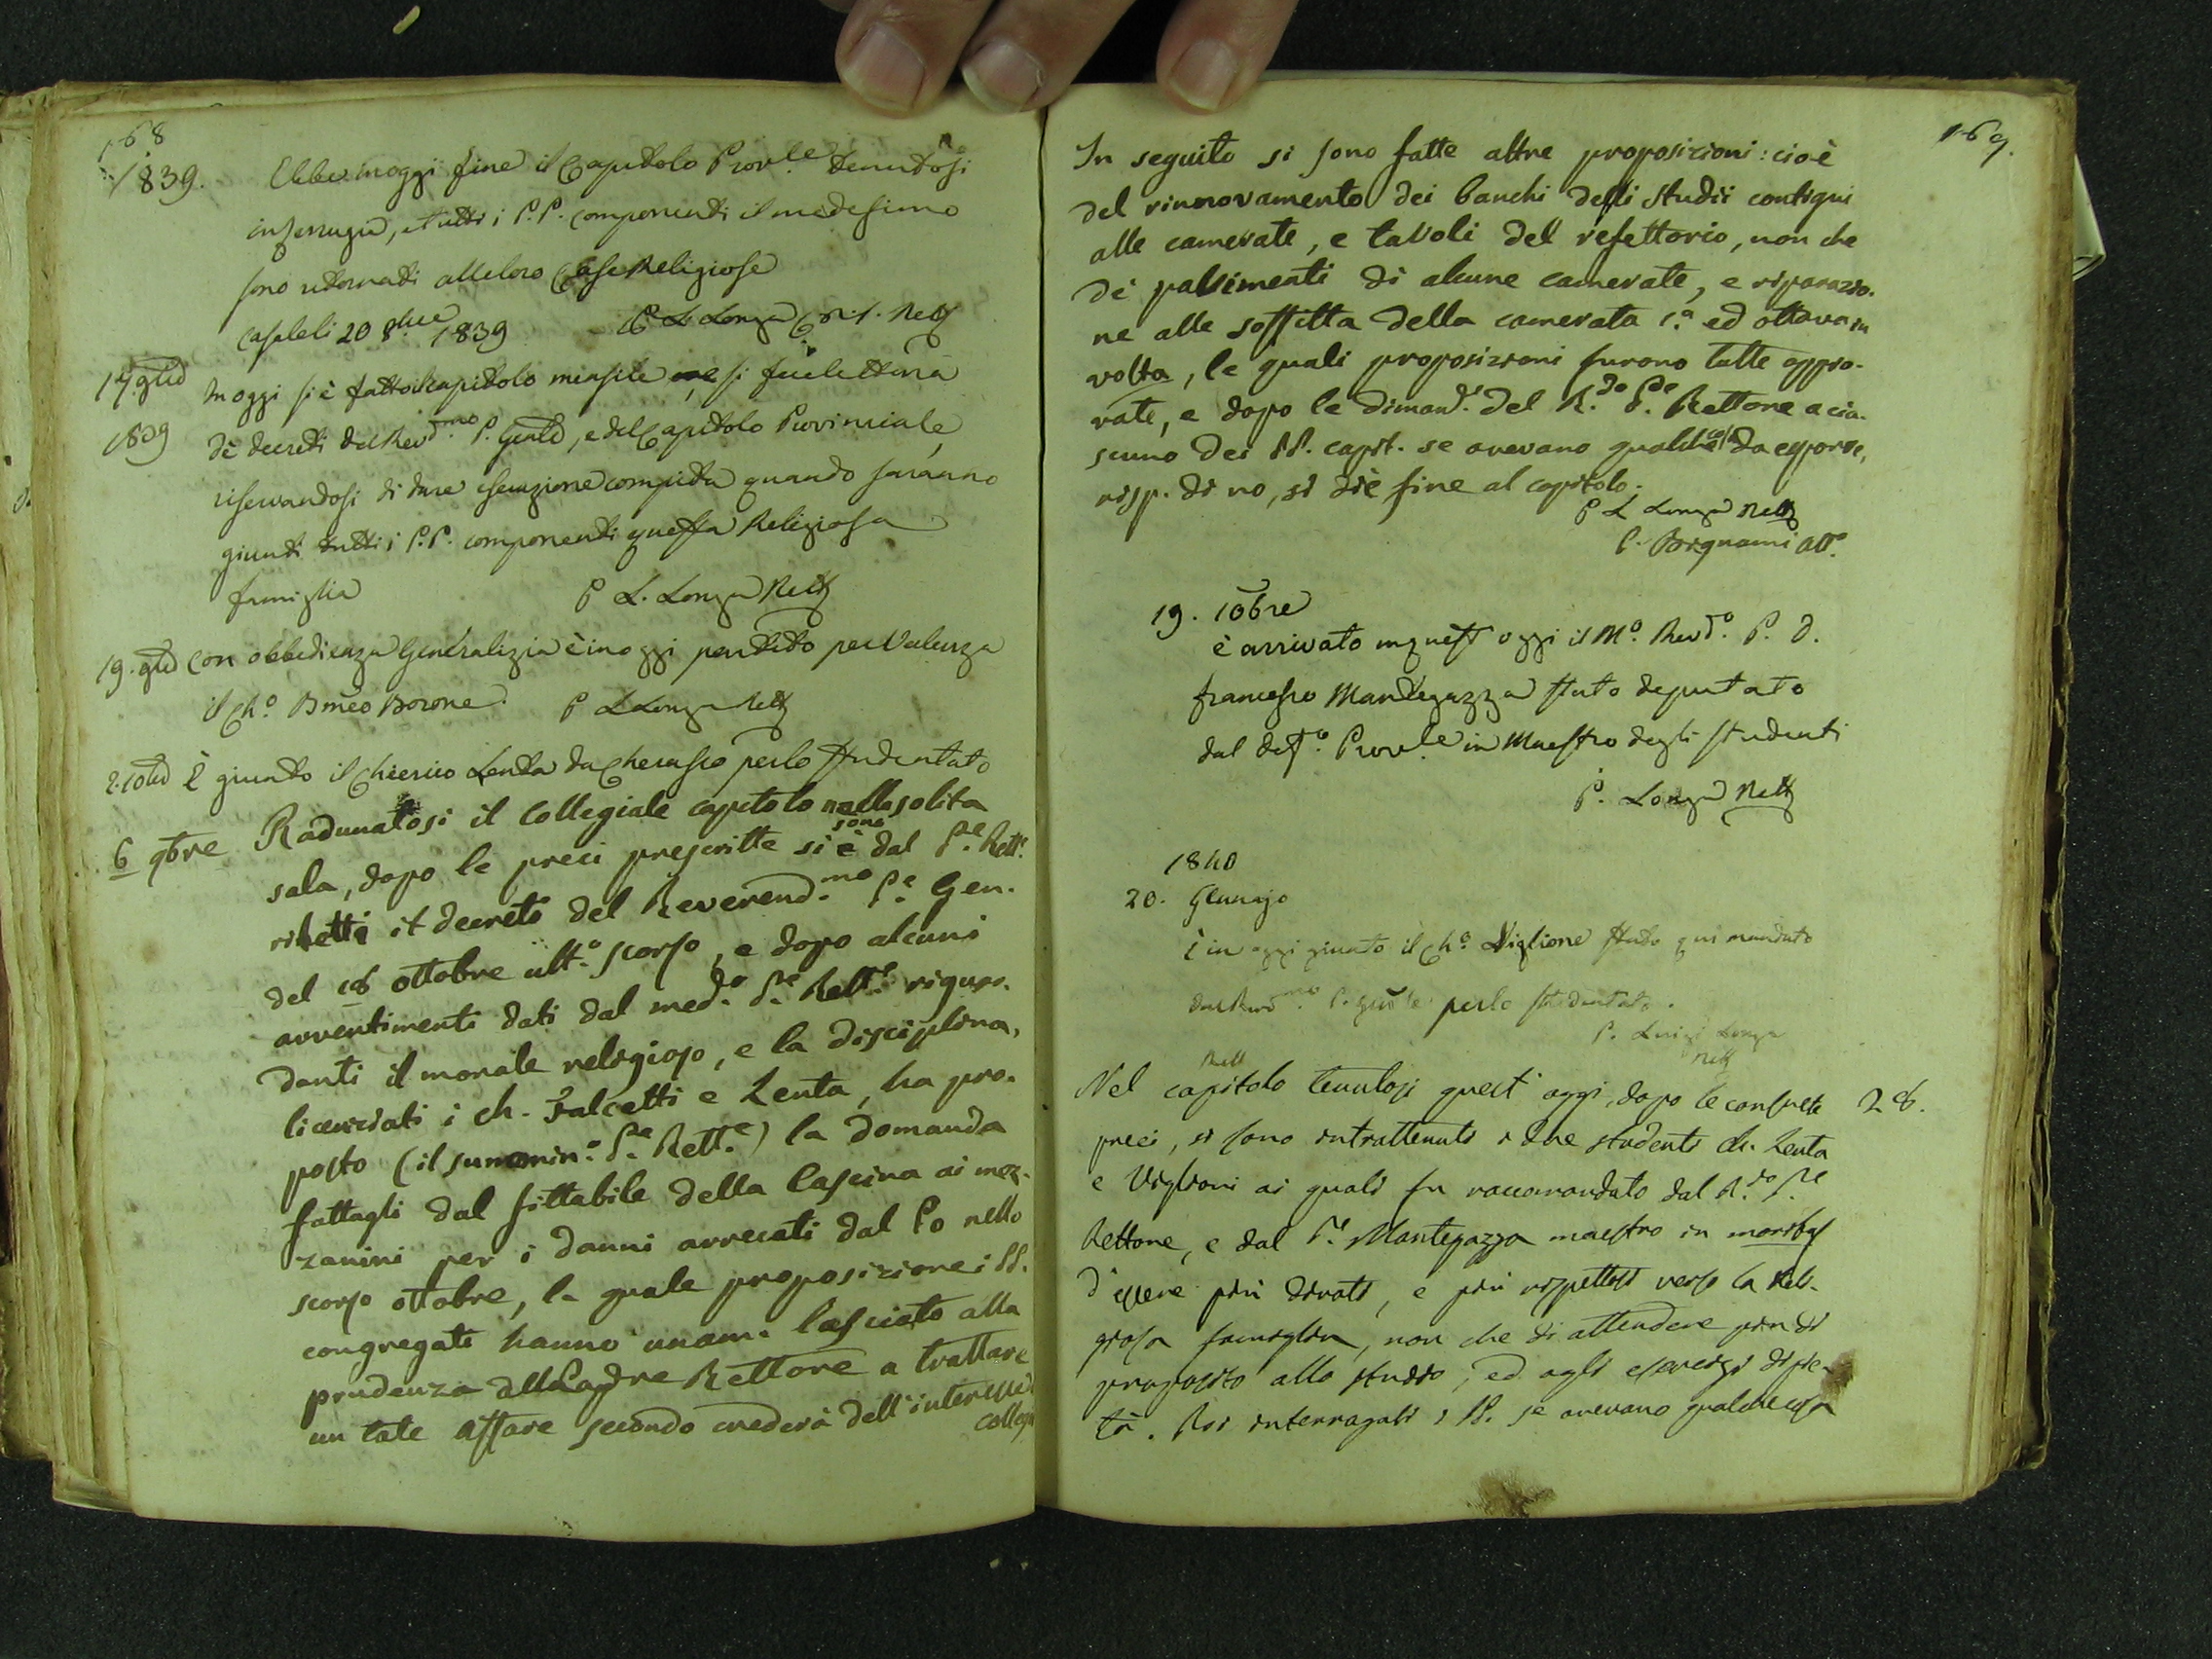 168
1839. Ebbe in oggi fine il Capitolo Prov.le tenutosi
in ferrugia, e tutti i P.P. componenti il medesimo
sono ritornati alle loro Case Religiose
Casale li 20 8bre 1839 P. L. Longa Rett.
17. 9bre In oggi si è fatto il capitolo mensile, si fu lettura
1839 de' decreti del Rev.mo P. Gen.le, e del Capitolo Provinciale,
riservandosi di dare esecuzione compiuta quando saranno
giunti tutti i P.P. componenti questa Religiosa
famiglia P. L. Longa Rett.
19. 9bre Con obbedienza Generalizia è in oggi partito per Valenza
il Ch.o Bmeo Borone. P. L. Longa Rett.
2. 10bre È giunto il Chierico Lenta da Cherasco per lo studentato
6 9bre Radunatosi il Collegiale capitolo nella solita
sala, dopo le preci prescritte si è sono dal P.e Rett.e
riletti il decreto del Reverend.mo P.e Gen.
del 16 ottobre ult.o scorso, e dopo alcuni
avvertimenti dati dal med.o P.e Rett.e riguar-
danti il morale religioso, e la disciplina,
licenziati i ch. Falcetti e Lenta, ha pro-
posto (il summin.o P.e Rett.e) la domanda
fattagli dal fittabile della Cascina ai moz-
zanini per i danni arrecati dal Po nello
scorso ottobre, la quale proposizione i PP.
congregati hanno unam. lasciato alla
prudenza del Padre Rettore a trattare
un tale affare secondo crederà dell'interesse del
collegio
169.
In seguito si sono fatte altre proposizioni: cioè
del rinnovamento dei banchi delli studii contigui
alle camerate, e tavoli del refettorio, non che
de' pavimenti di alcune camerate, e riparazio-
ne alle soffitta della camerata 1.a ed ottava in
volta, le quali proposizioni furono tutte appro-
vate, e dopo le dimand.e del R.do P.e Rettore a cia-
scuno dei PP. capit. se avevano qualche cosa da esporre,
risp. di no, si diè fine al capitolo.
P. L. Longa Rett.
P. Bignami Att.o
19. 10bre
è arrivato in quest'oggi il M.o Rev.do P. D.
Francesco Mantegazza stato deputato
dal Def.o Prov.le in Maestro degli studenti
P. Longa Rett.
1840
20. Gennajo
È in oggi giunto il Ch.o Viglione stato qui mandato
dal Rev.mo P. Gen.le per lo studentato.
P. Luigi Longa
Rett.
Nel capitolo tenutosi quest'oggi, dopo le consuete 26.
preci, si sono intrattenuti i due studenti ch. Lenta
e Viglioni ai quali fu raccomandato dal R.do P.e
Rettore, e dal P.e Mantegazza maestro in moribus
d'essere più divoti, e più rispettosi verso la reli-
giosa famiglia, non che di attendere più di
proposito allo studio, ed agli esercizi di pie-
tà. Poi interrogati i PP. se avevano qualche cosa